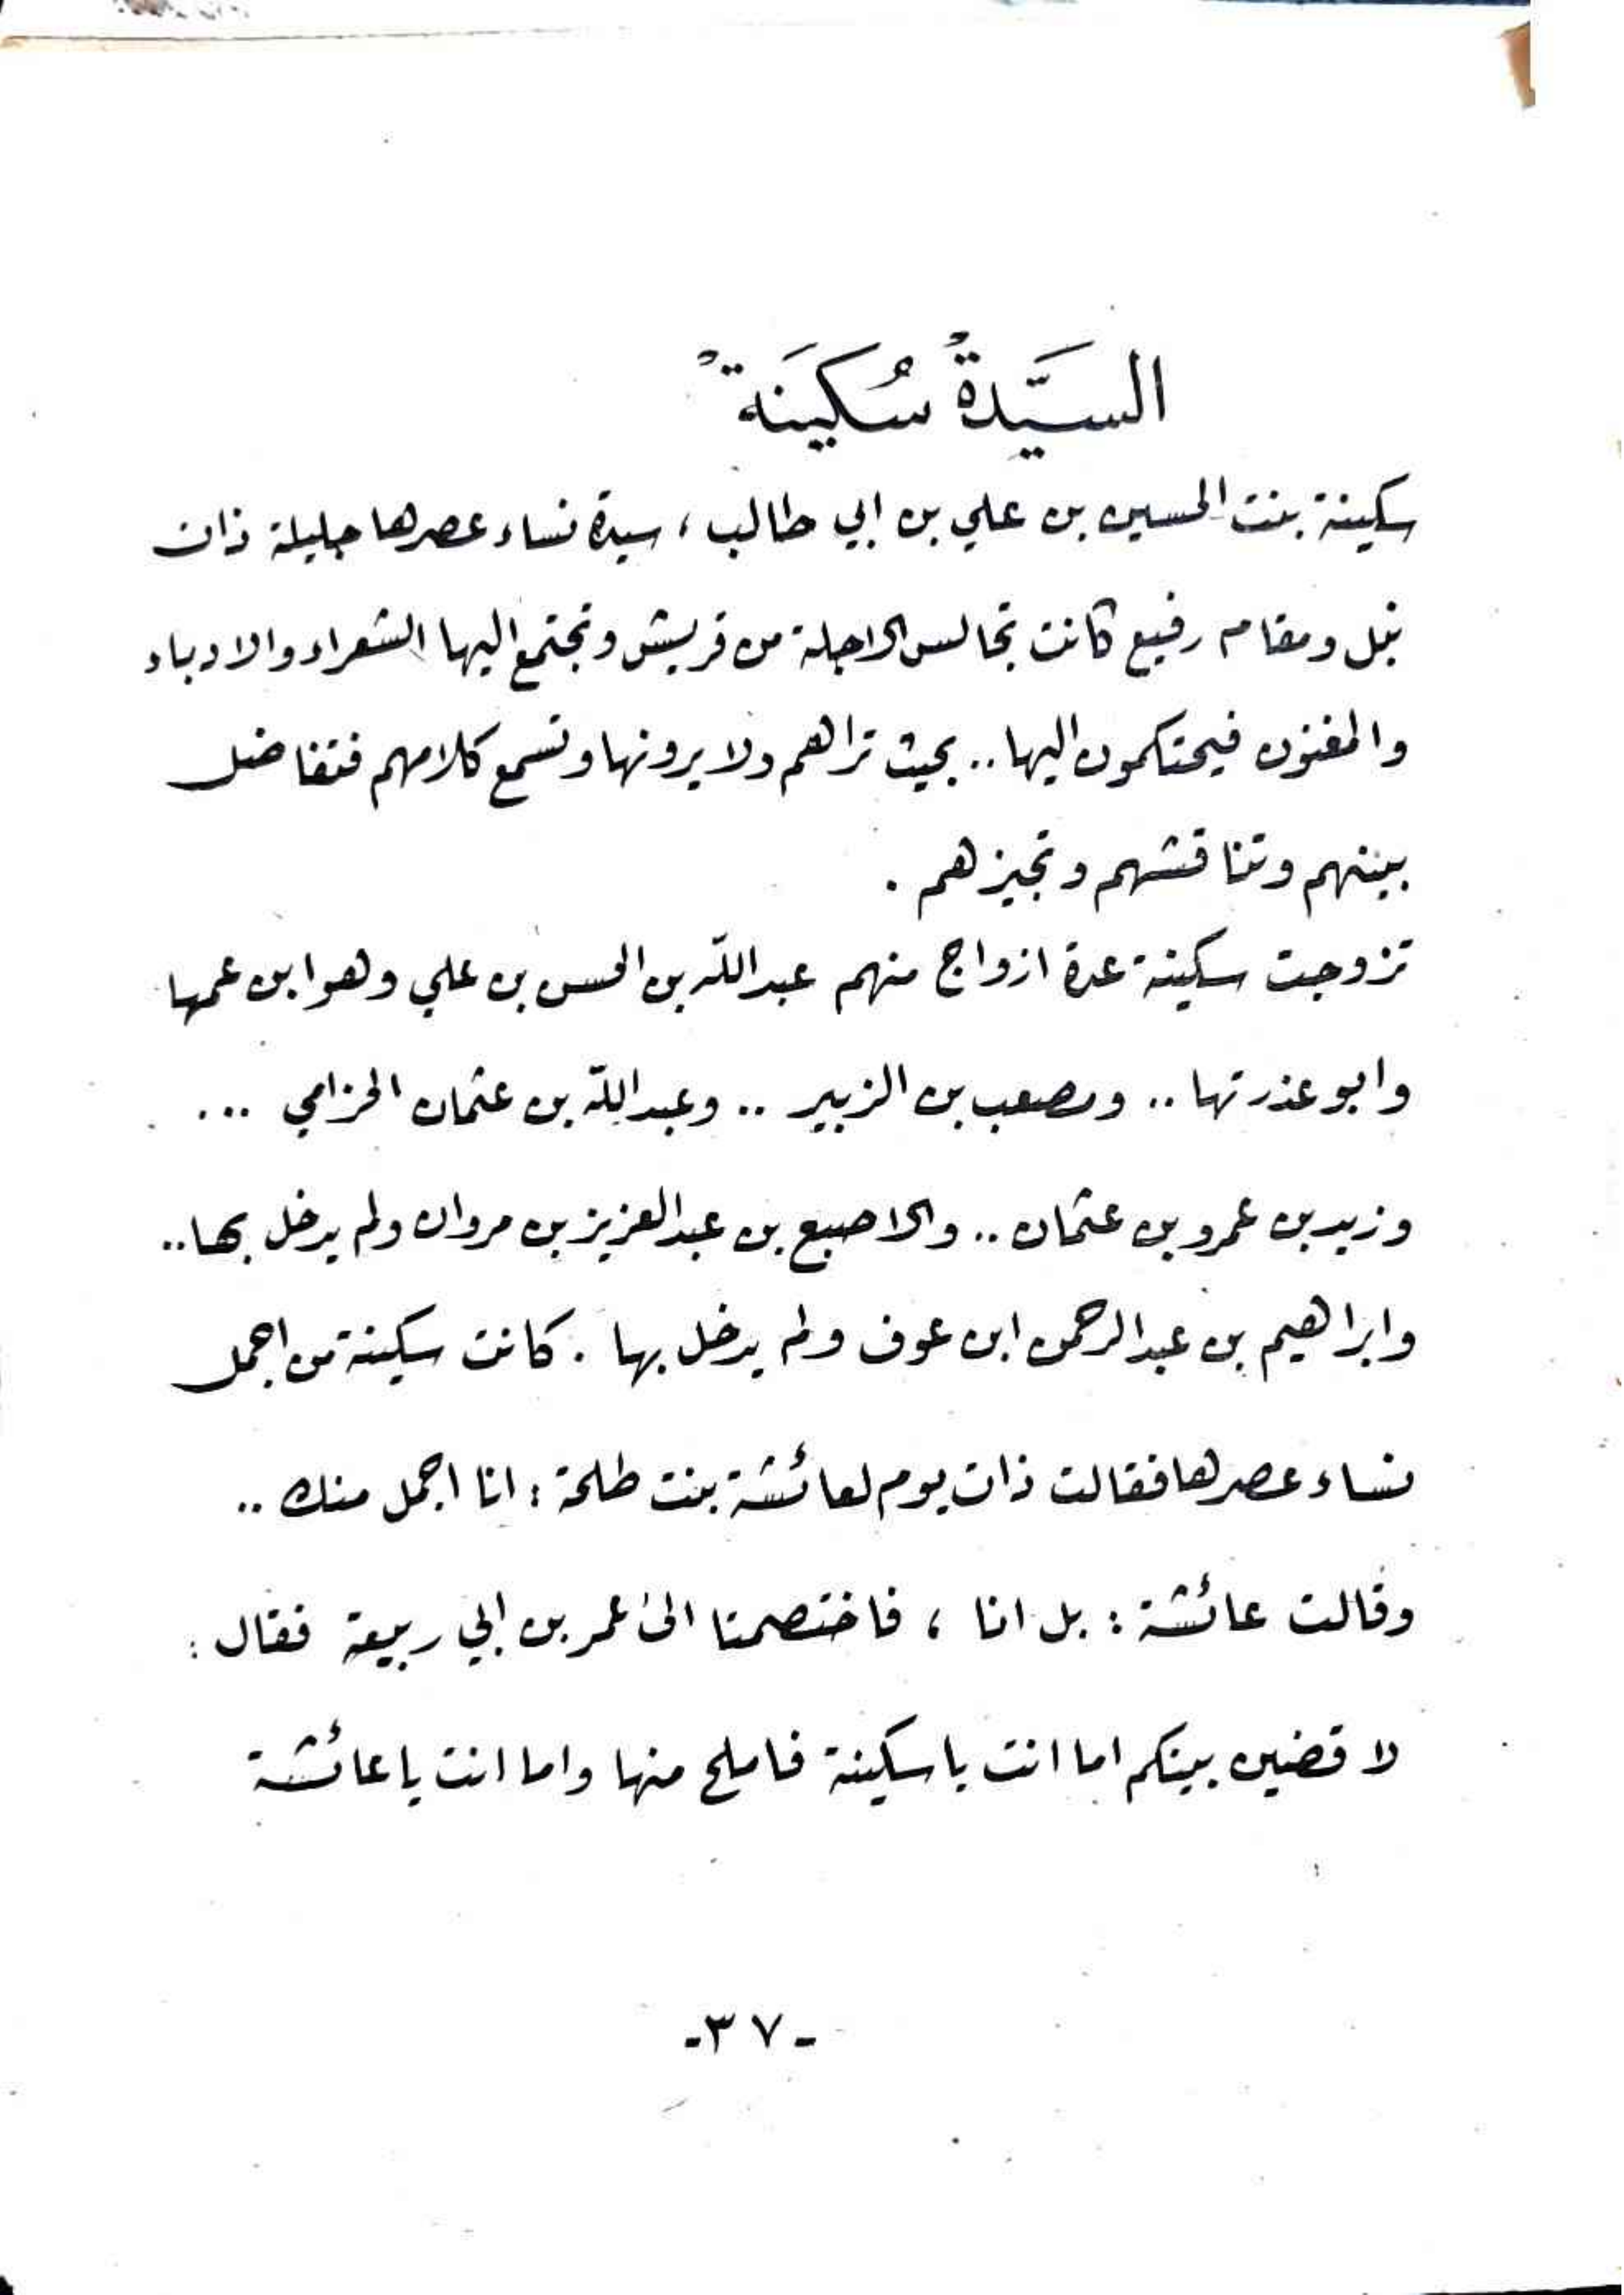 السَّيِّدةُ سُكَينَةُ
سكينة بنت الحسين بن علي بن ابي طالب ، سيدة نساء عصرها جليلة ذات
نبل ومقام رفيع كانت تجالس الاجلة من قريش وتجتمع اليها الشعراء والادباء
والمغنون فيحتكمون اليها .. بحيث تراهم ولا يرونها وتسمع كلامهم فتفاضل
بينهم وتناقشهم وتجيزهم .
تزوجت سكينة عدة ازواج منهم عبدالله بن الحسن بن علي وهو ابن عمها
وابو عذرتها .. ومصعب بن الزبير .. وعبدالله بن عثمان الحزامي ...
وزيد بن عمرو بن عثمان .. والاصبع بن عبدالعزيز بن مروان ولم يدخل بها ..
وابراهيم بن عبدالرحمن ابن عوف ولم يدخل بها . كانت سكينة من اجمل
نساء عصرها فقالت ذات يوم لعائشة بنت طلحة : انا اجمل منك ..
وقالت عائشة : بل انا ، فاختصمتا الى عمر بن ابي ربيعة فقال :
لاقضين بينكم اما انت يا سكينة فاملح منها واما انت يا عائشة
-٣٧-